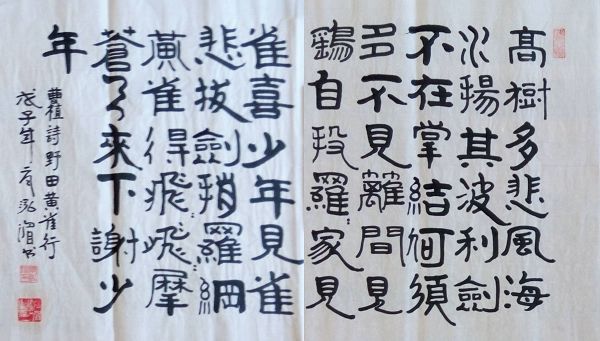 高樹多悲風海
水揚其波利劍
不在掌結何須
多不見籬間見
鷂自投羅家見
雀喜少年見雀
悲拔劍捎羅網
黃雀得飛〻飛〻摩
蒼天來下謝少
年
曹植詩野田黄雀行
戊子年夏 書